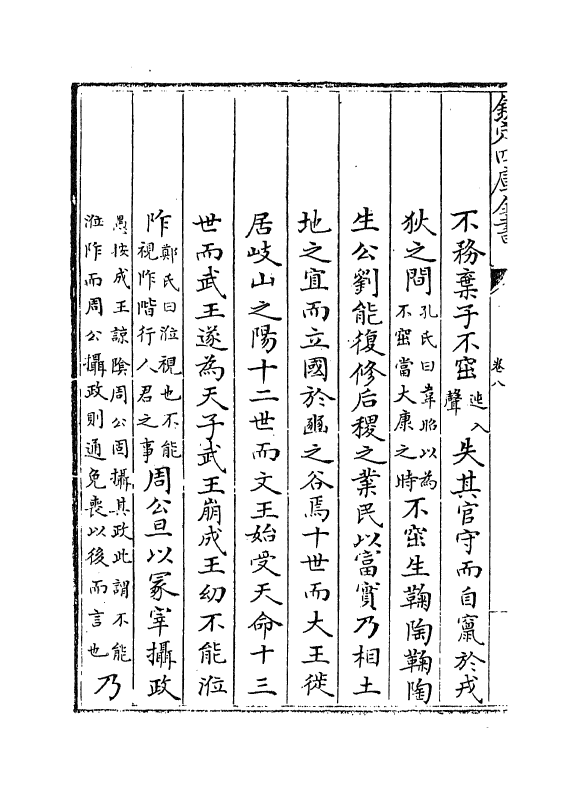 欽定四庫全書
卷八
不務棄子不窋迚入聲失其官守而自竄於戎
狄之間孔氏曰韋昭以為不窋當大康之時不窋生鞠陶鞠陶
生公劉能復修后稷之業民以富實乃相土
地之宜而立國於豳之谷焉十世而大王徙
居岐山之陽十二世而文王始受天命十三
世而武王遂為天子武王崩成王幼不能涖
阼鄭氏曰涖視也不能視阼階行人君之事周公旦以冢宰攝政
愚按成王諒陰周公固攝其政此謂不能涖阼而周公攝政則通免喪以後而言也乃